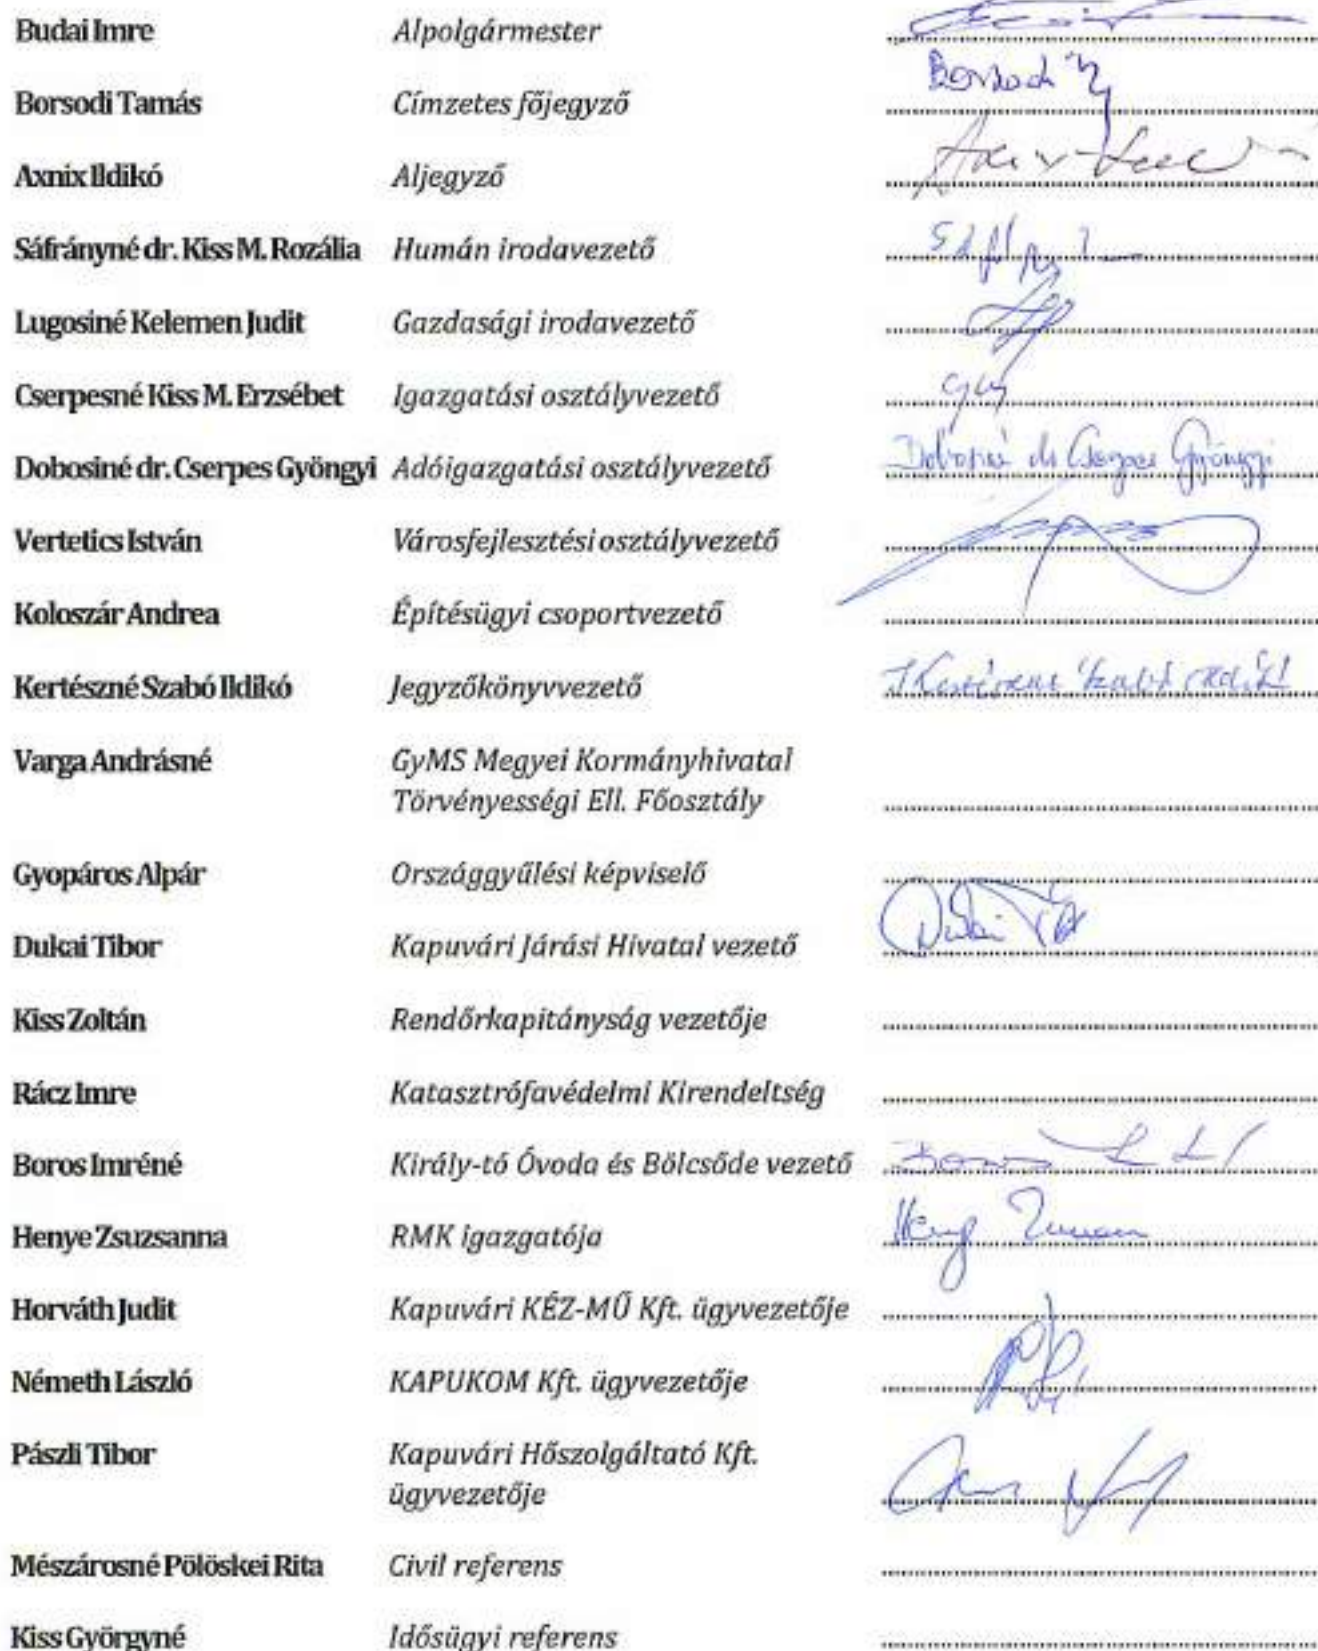 Budai Imre Alpolgármester
Borsodi Tamás Címzetes főjegyző Borsodi
Axnix Ildikó Aljegyző
Sáfrányné dr. Kiss M. Rozália Humán irodavezető
Lugosiné Kelemen Judit Gazdasági irodavezető
Cserpesné Kiss M. Erzsébet Igazgatási osztályvezető
Dobosiné dr. Cserpes Gyöngyi Adóigazgatási osztályvezető Dobosiné dr Cserpes Gyöngyi
Vertetics István Városfejlesztési osztályvezető
Koloszár Andrea Építésügyi csoportvezető
Kertészné Szabó Ildikó Jegyzőkönyvvezető Kertészné Szabó Ildikó
Varga Andrásné GyMS Megyei Kormányhivatal
Törvényességi Ell. Főosztály
Gyopáros Alpár Országgyűlési képviselő
Dukai Tibor Kapuvári Járási Hivatal vezető Dukai
Kiss Zoltán Rendőrkapitányság vezetője
Rácz Imre Katasztrófavédelmi Kirendeltség
Boros Imréné Király-tó Óvoda és Bölcsőde vezető Boros
Henye Zsuzsanna RMK igazgatója
Horváth Judit Kapuvári KÉZ-MŰ Kft. ügyvezetője
Németh László KAPUKOM Kft. ügyvezetője
Pászli Tibor Kapuvári Hőszolgáltató Kft.
ügyvezetője
Mészárosné Pölöskei Rita Civil referens
Kiss Györgyné Idősügyi referens